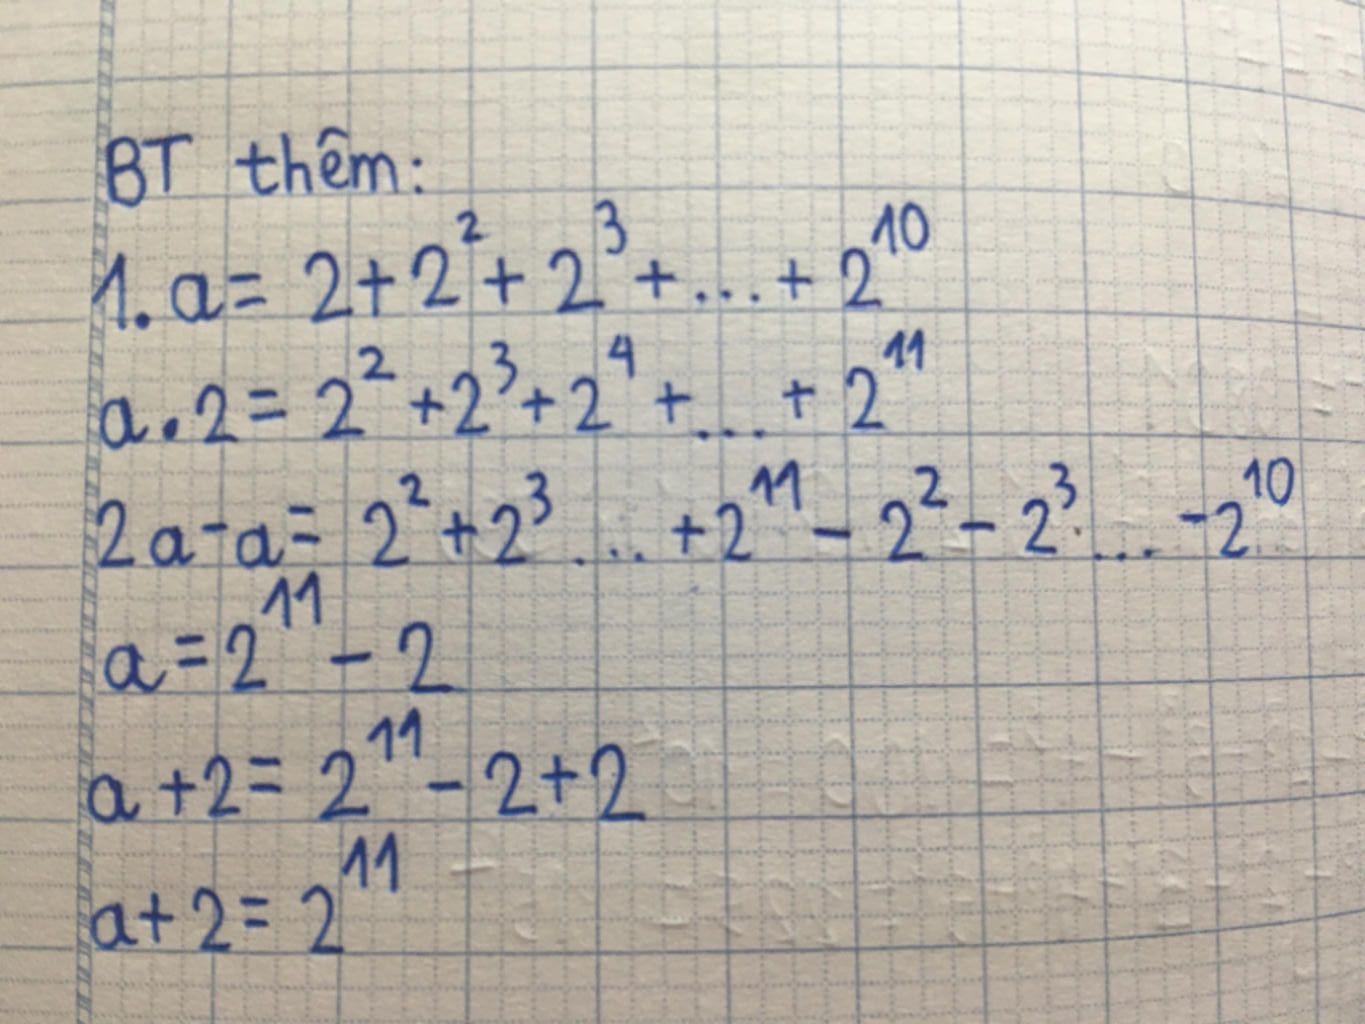 BT thêm:
1. a = 2 + 2² + 2³ + ... + 2¹⁰
a . 2 = 2² + 2³ + 2⁴ + ... + 2¹¹
2a - a = 2² + 2³ ... + 2¹¹ - 2² - 2³ ... - 2¹⁰
a = 2¹¹ - 2
a + 2 = 2¹¹ - 2 + 2
a + 2 = 2¹¹